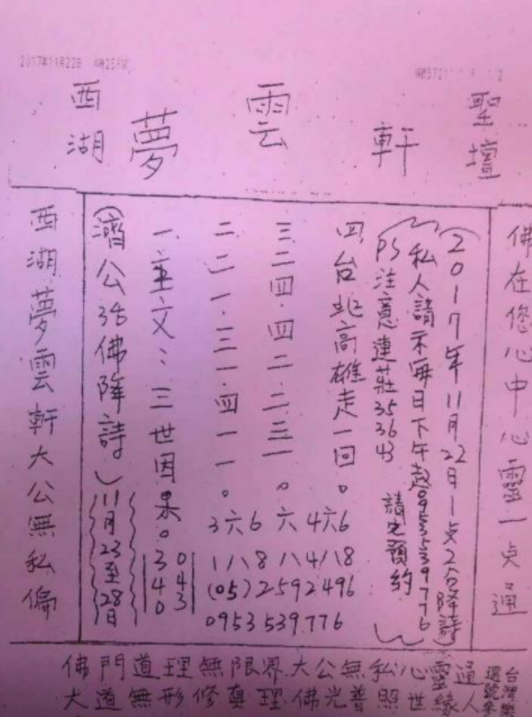 2017年11月22日
西湖
夢
雲
軒
聖壇
西湖夢雲軒大公無私偏
(濟公活佛降詩)11月23至28日
一.主文:三世因果。340 043
二二一.三一.四一一。
三二四.四二.二三一。
四台北高雄走一回。
3六6 六 4六6
1八8 八4八8
(05)2592496
0953539776
PS注意連莊353643 請先預約
私人請示每日下午起0953539776
(2017年11月22日1点2分降詩)
佛在您心中心靈一点通
佛門道理無限界.大公無私心靈通
大道無形修真理.佛光普照世緣人
台灣樂
選號參